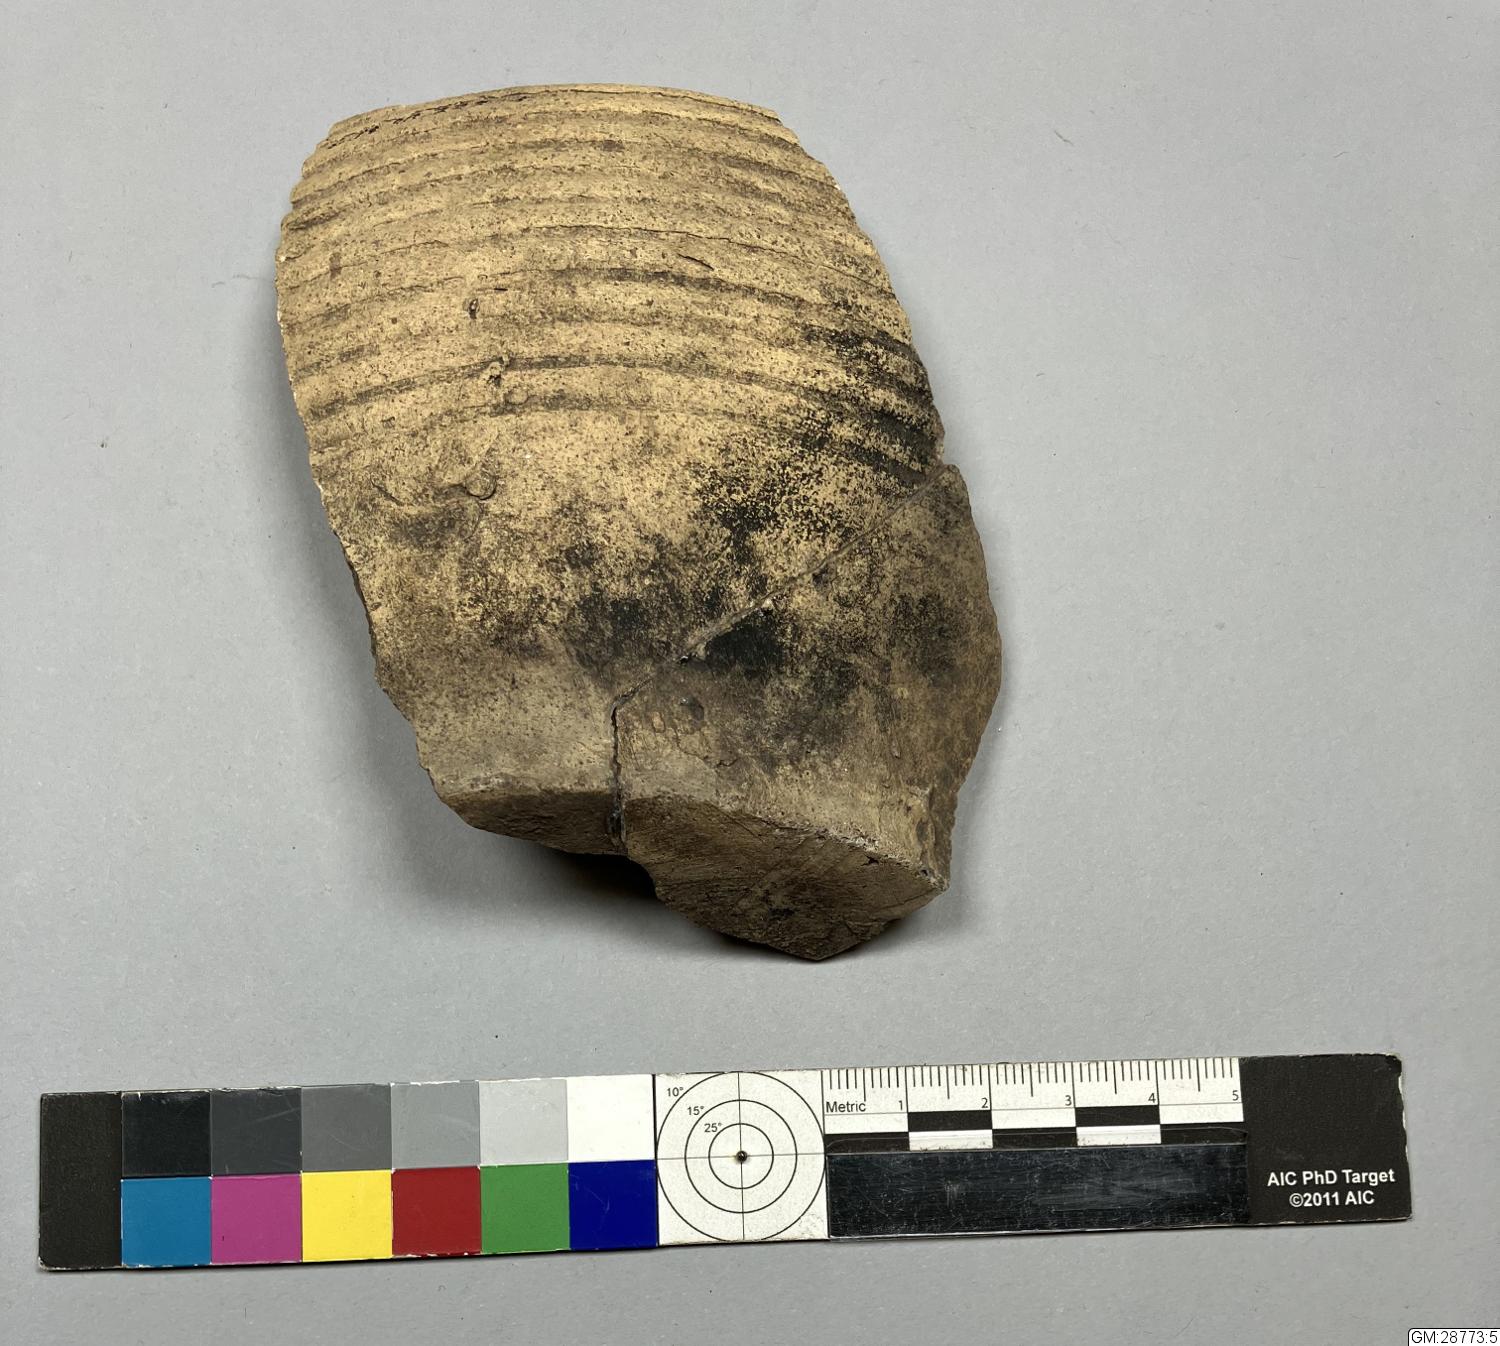 10°
15°
25°
Metric 1 2 3 4 5
AIC PhD Target
©2011 AIC
GM:28773:5